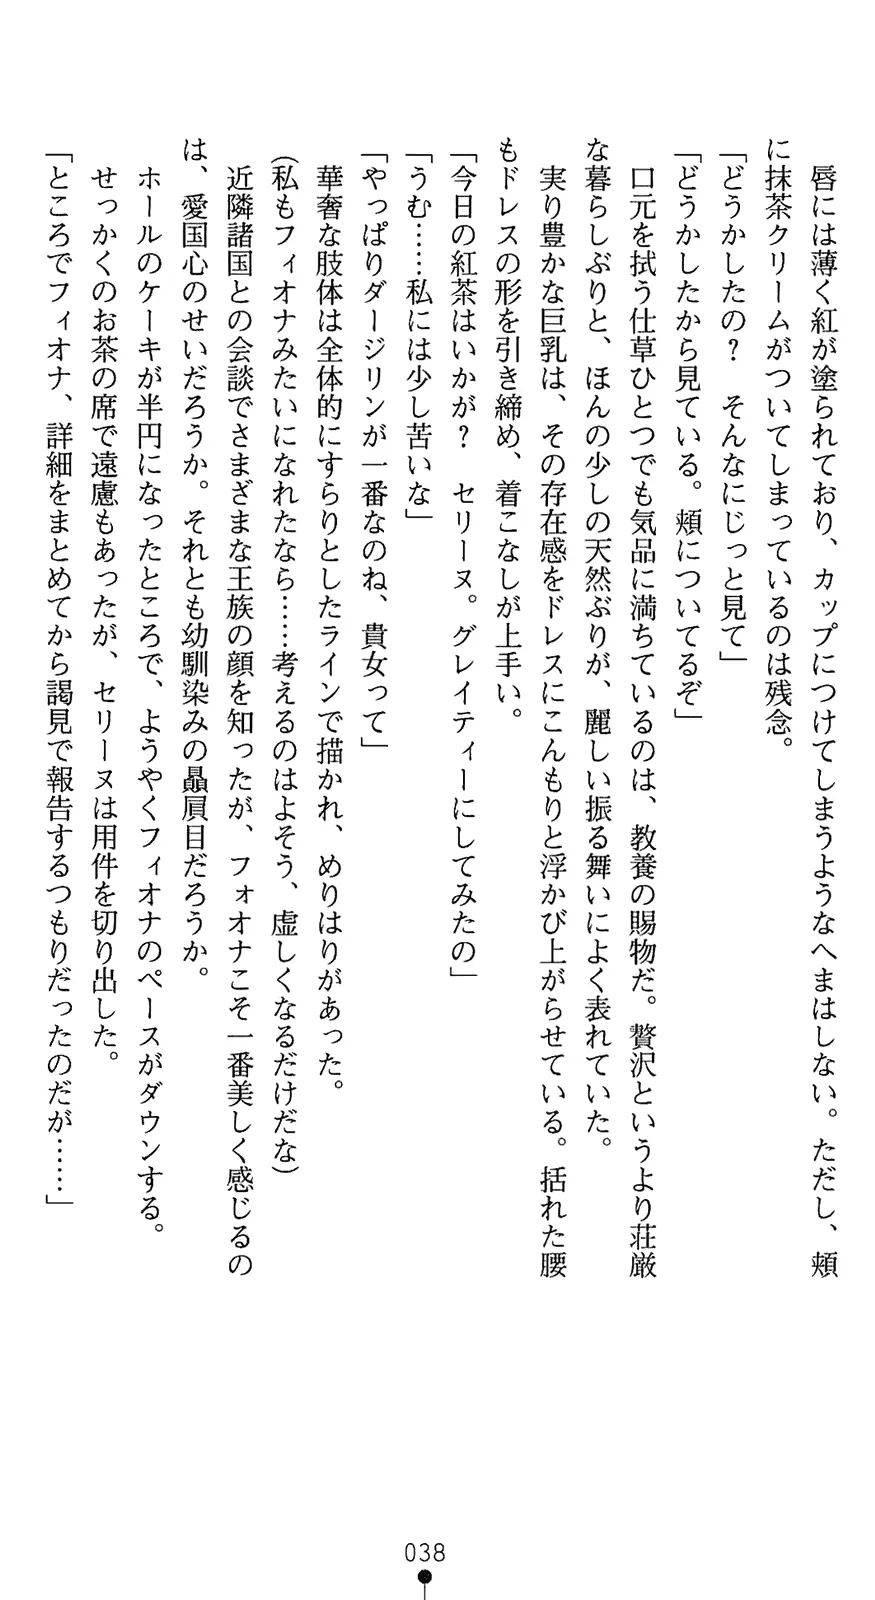 唇には薄く紅が塗られており、カップにつけてしまうようなへまはしない。ただし、頬
に抹茶クリームがついてしまっているのは残念。
「どうかしたの？　そんなにじっと見て」
「どうかしたから見ている。頬についてるぞ」
口元を拭う仕草ひとつでも気品に満ちているのは、教養の賜物だ。贅沢というより荘厳
な暮らしぶりと、ほんの少しの天然ぶりが、麗しい振る舞いによく表れていた。
実り豊かな巨乳は、その存在感をドレスにこんもりと浮かび上がらせている。括れた腰
もドレスの形を引き締め、着こなしが上手い。
「今日の紅茶はいかが？　セリーヌ。グレイティーにしてみたの」
「うむ……私には少し苦いな」
「やっぱりダージリンが一番なのね、貴女って」
華奢な肢体は全体的にすらりとしたラインで描かれ、めりはりがあった。
(私もフィオナみたいになれたなら……考えるのはよそう、虚しくなるだけだな)
近隣諸国との会談でさまざまな王族の顔を知ったが、フォオナこそ一番美しく感じるの
は、愛国心のせいだろうか。それとも幼馴染みの贔屓目だろうか。
ホールのケーキが半円になったところで、ようやくフィオナのペースがダウンする。
せっかくのお茶の席で遠慮もあったが、セリーヌは用件を切り出した。
「ところでフィオナ、詳細をまとめてから謁見で報告するつもりだったのだが……」
038